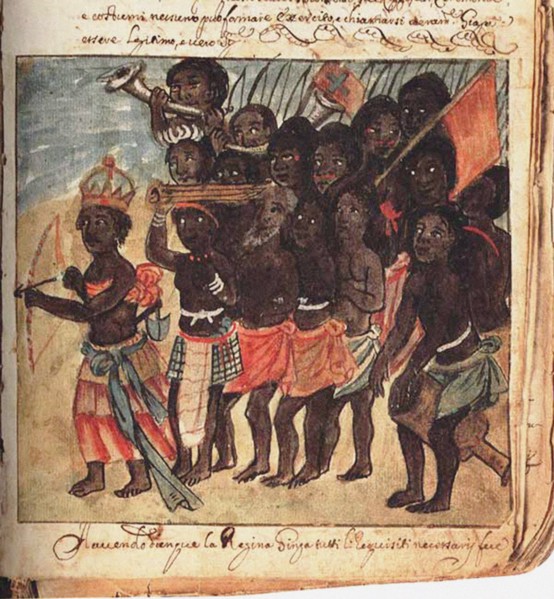 e costumi nessuno può formare Esercito, e chiamarsi
essere legitimo, e vero
Havendo dunque la Regina Ginga tutti li Requisiti necessarij fece